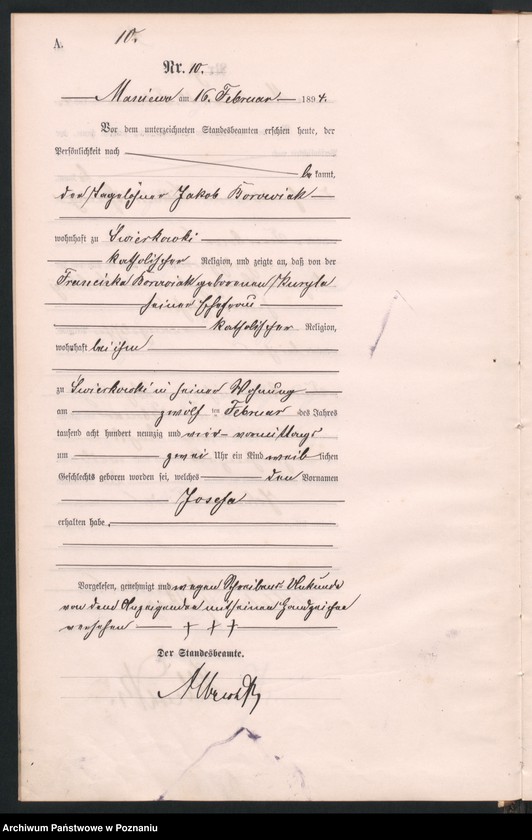 A.
10.
Nr. 10.
Maniewo am 16. Februar 1894.
Vor dem unterzeichneten Standesbeamten erschien heute, der
Persönlichkeit nach
bekannt,
der Tagelöhner Jakob Borowiak
wohnhaft zu Swierkowki
katholischer Religion, und zeigte an, daß von der
Franciska Borowiak geborenen
seiner Ehefrau
katholischer Religion,
wohnhaft bei ihm
zu Swierkowki in seiner Wohnung
am zwölf ten Februar des Jahres
tausend acht hundert neunzig und vier vormittags
um zwei Uhr ein Kind weiblichen
Geschlechts geboren worden sei, welches den Vornamen
Josefa
erhalten habe.
Vorgelesen, genehmigt und wegen Schreibens Unkunde
von dem Anzeigenden mit seinem Handzeichen
versehen + + +
Der Standesbeamte.
Archiwum Państwowe w Poznaniu